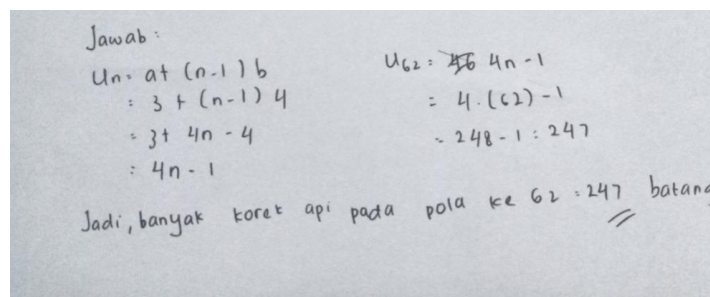 Jawab :
Un = a + (n-1) b
= 3 + (n-1) 4
= 3 + 4n - 4
= 4n - 1
U62 = 4n - 1
= 4. (62) - 1
= 248 - 1 = 247
Jadi, banyak korek api pada pola ke 62 = 247 batang